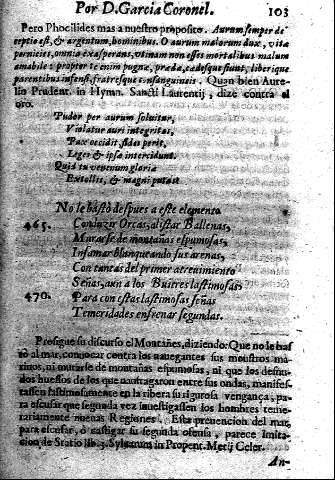 Por D. Garcia Coronel. 103
Pero Phocilides mas a nuestro proposito. Aurum semper de
ceptio est, & argentum, hominibus. O aurum malorum dux, vita
pernicies, omnia exasperans, utinam non esses mortalibus malum
amabile: propter te enim pugna, præda, cædesque fiunt, liberique
parentibus infensi, fratresque consanguineis. Quan bien Aure-
lio Prudent. in Hymn. Sancti Laurentij, dize contra el
oro.
Pudor per aurum soluitur,
Violatur auri integritas,
Pax occidit, fides perit,
Leges & ipsa intercidunt.
Quid tu venenum gloria
Extollis, & magni putas?
No le bastò despues a este elemento
465. Conduzir Orcas, alistar Ballenas,
Murarse de montañas espumosas,
Infamar blanqueando sus arenas,
Con tantas del primer atreuimiento
Señas, aun a los Buitres lastimosas,
470. Para con estas lastimosas señas
Temeridades enfrenar segundas.
Prosigue su discurso el Montañes, diziendo: Que no le bas
tò al mar, conuocar contra los nauegantes sus monstros ma-
rinos, ni murarse de montañas espumosas, ni que los desnu-
dos huessos de los que naufragaron entre sus ondas, manifes-
tassen lastimosamente en la ribera su rigurosa vengança, pa-
ra escusar que segunda vez inuestigassen los hombres teme-
rariamente nueua Regiones. Esta preuencion del mar,
para escusar, ò castigar su segunda ofensa, parece imita-
cion de Statio lib. 3. Syluarum in Propent. Metij Celer.
An-